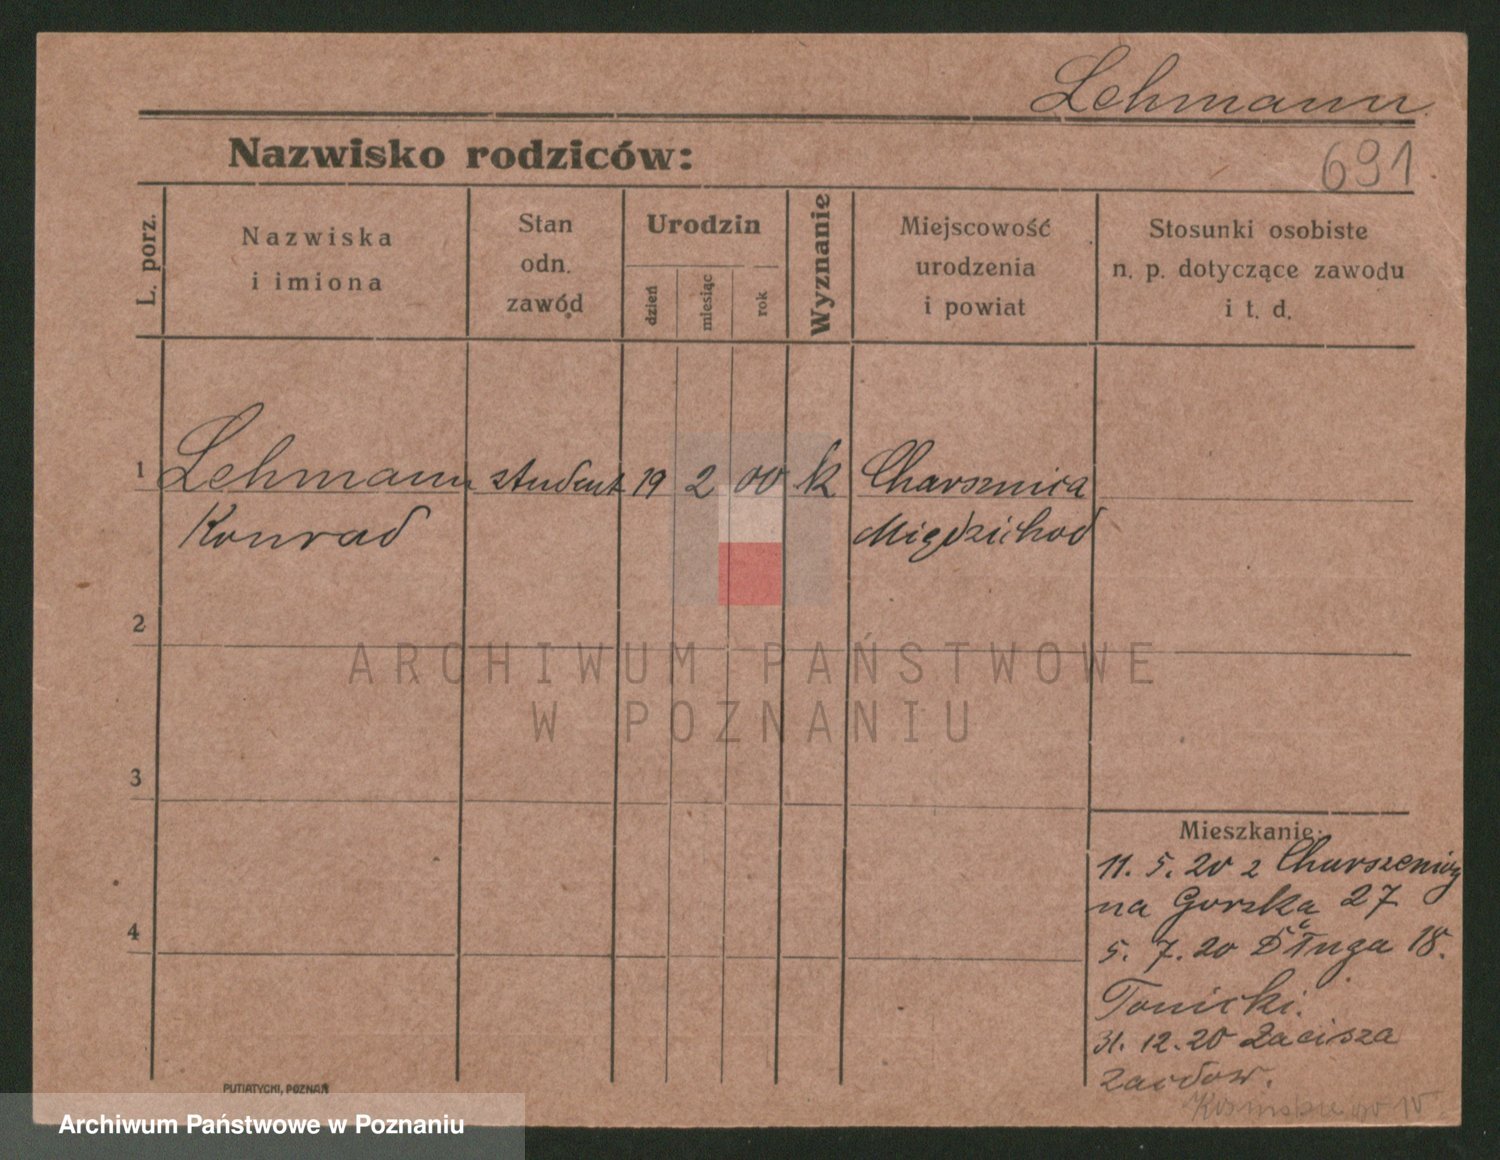 Lehmann
Nazwisko rodziców:
691
L. porz.
Nazwiska
i imiona
Stan
odn.
zawód
Urodzin
dzień
miesiąc
rok
Wyznanie
Miejscowość
urodzenia
i powiat
Stosunki osobiste
n. p. dotyczące zawodu
i t. d.
1 Lehmann student 19 2 00 k Charsznica
Konrad Międzichod
2
ARCHIWUM PAŃSTWOWE
W POZNANIU
3
Mieszkanie:
11. 5. 20 z Charszenicy
na Gorską 27
4
5. 7. 20 Długa 18.
Tonicki.
31. 12. 20 Zacisza
PUTIATYCKI, POZNAŃ
Archiwum Państwowe w Poznaniu